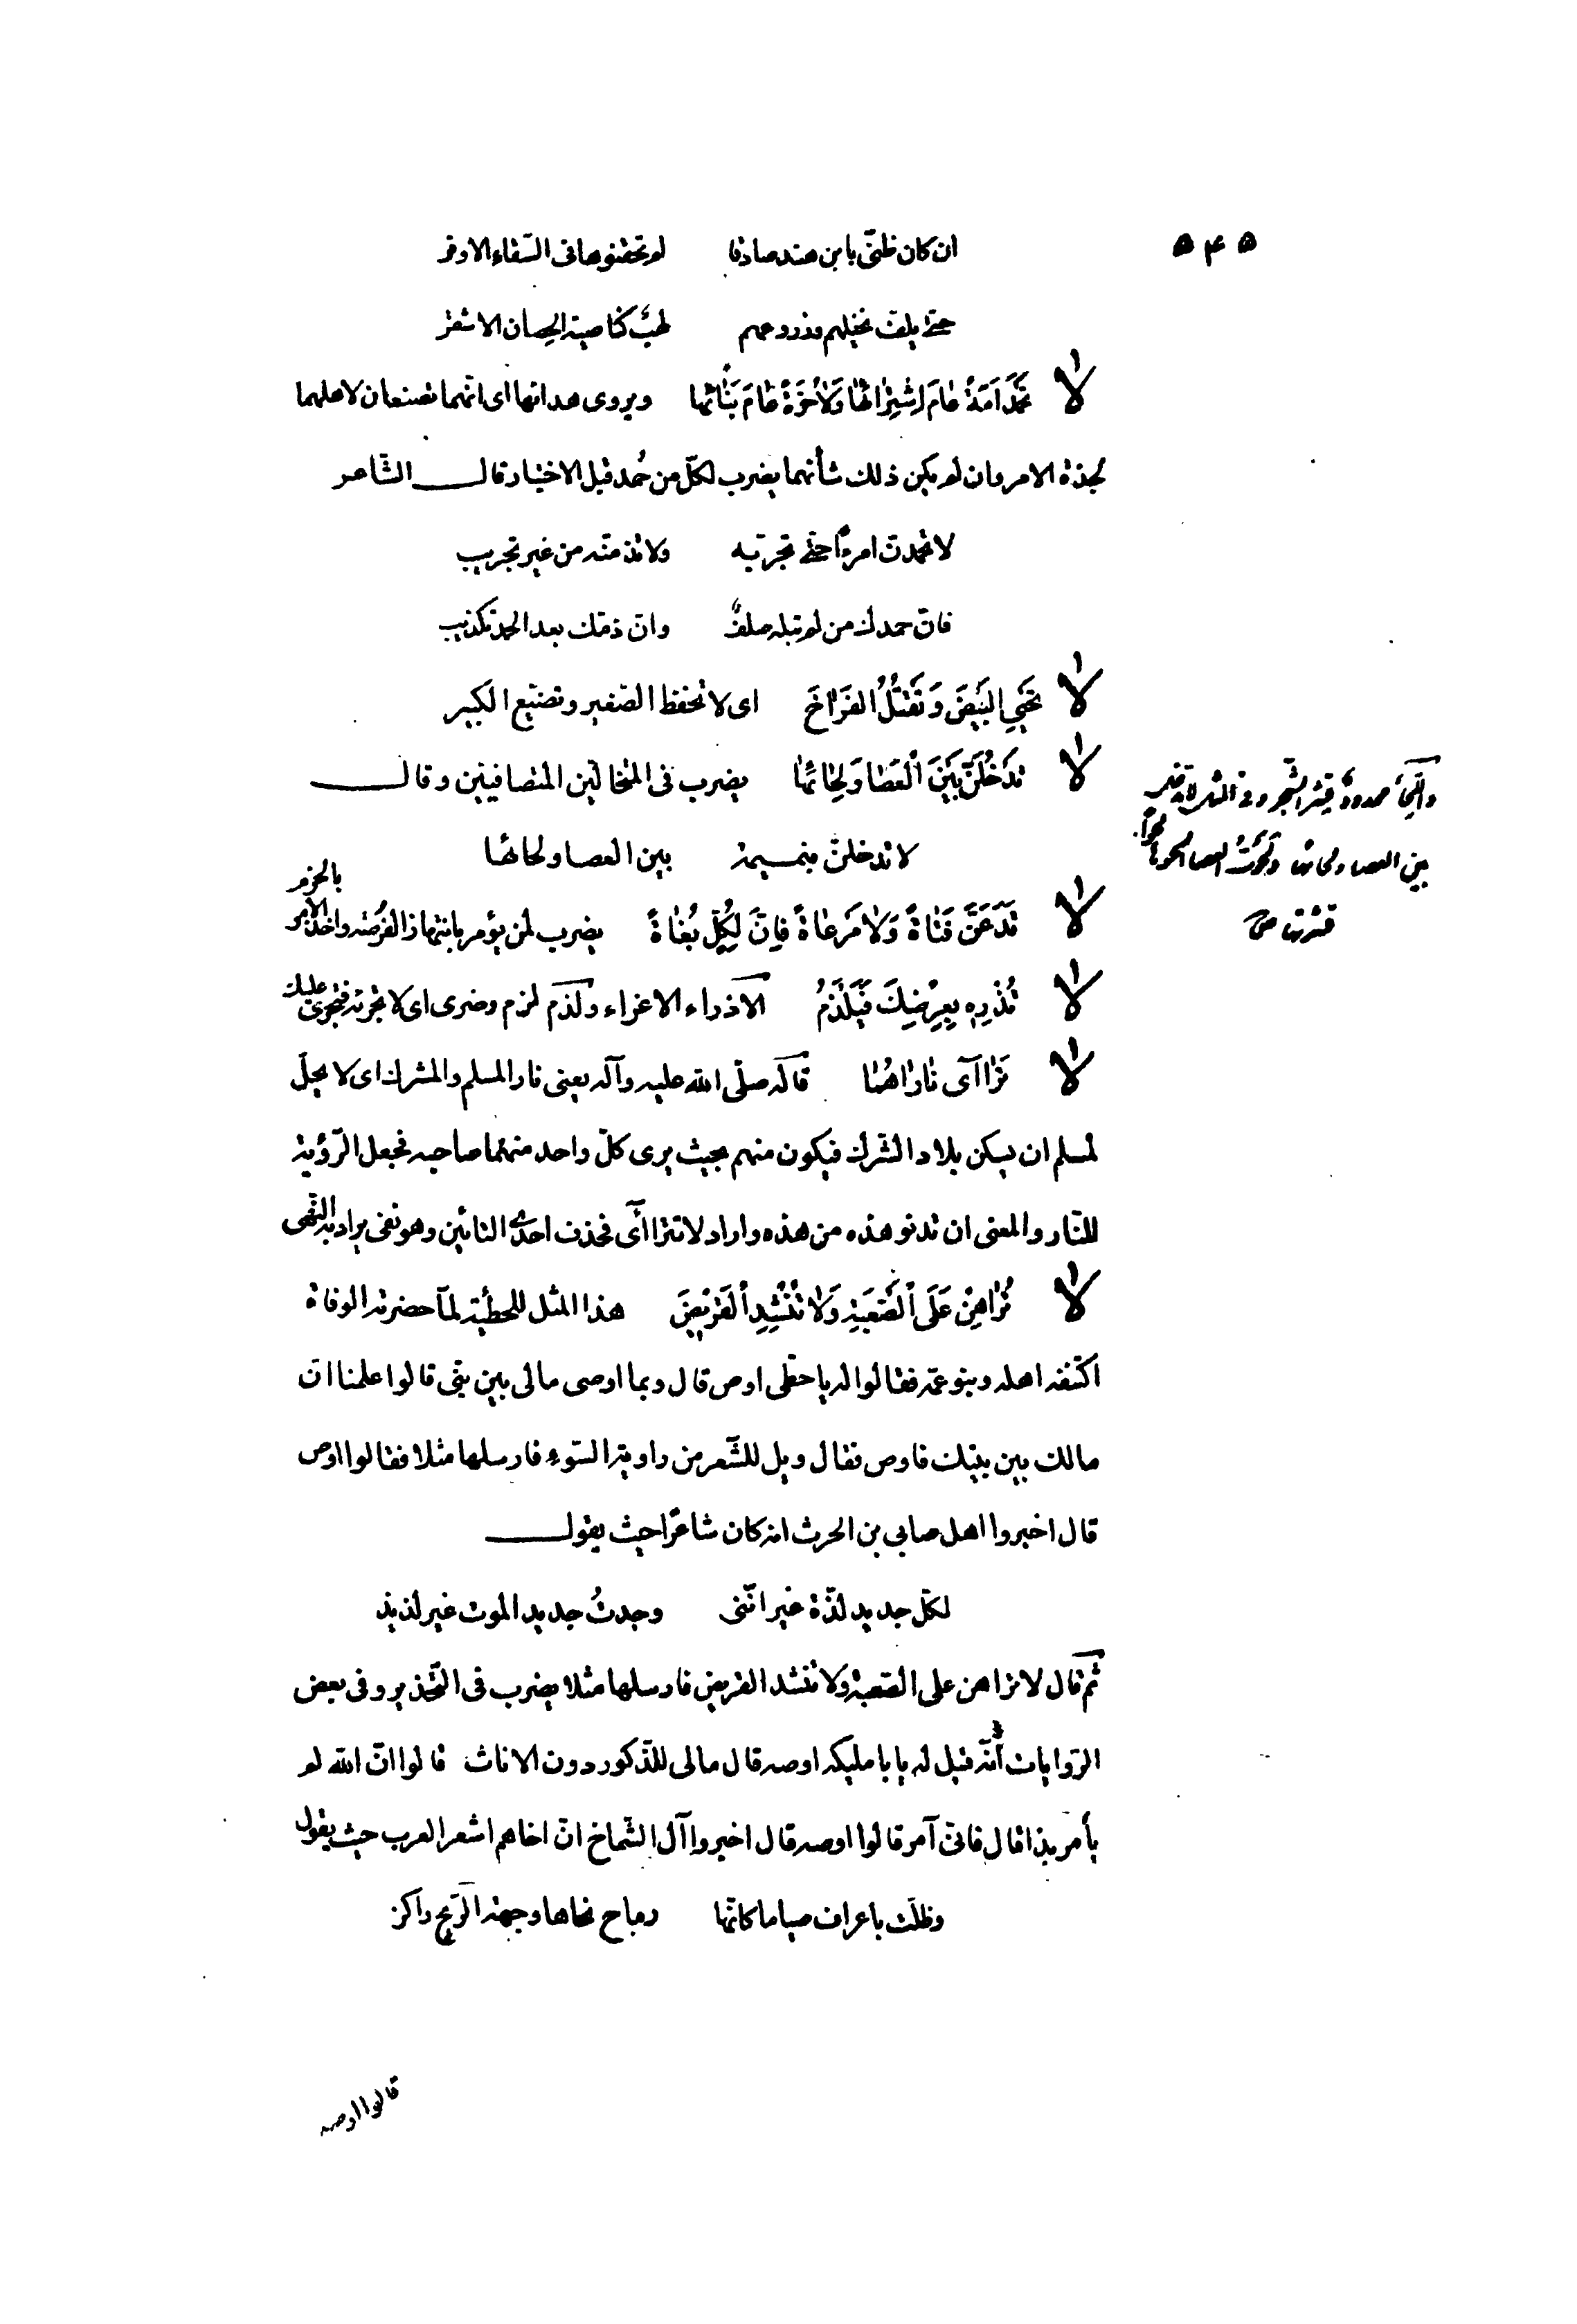 ۵۴۵
ان كان ظنّى بابن هند صادقا لم تحقنوها فى السّقاء الاوفر
حتّى يلفّ نخيلهم وزروعهم لهبٌ كناصية الحصان الاشقر
لا تَحْمَدْ اَمَةً عٰامَ اِشْتِرٰائِهٰا وَلاٰ حُرَّةً عٰامَ بَنٰائِهٰا ويروى هدائها اى انّهما تصنعان لاهلهما
لجدّة الامر وان لم يكن ذلك شأنهما يضرب لكلّ من حُمد قبل الاختبار قال الشّاعر
لا تحمدنّ امرءًا حتّى تجرّبه ولا تذمنّه من غير تجريب
فانّ حمدك من لم تبله صلفٌ وانّ ذمّك بعد الحمد تكذيب
لا تَحْبِى البَيْضَ وَتَقْتُلُ الفَرٰاخَ اى لا تحفظ الصّغير وتضيّع الكبير
لا تَدْخُلَنَّ بَيْنَ الْعَصٰا وَلِحٰائِهٰا يضرب فى المتخالّين المتصافيين وقال
لا تدخلنّ بنميمة بين العصا ولحائها
واللّحأ ممدودٌ قشر الشّجر وفى المثل لا تدخل
بين العصا ولحائها ولَحَوتُ العصا الحوها لحواً
قشرتها صح
لا تَدَعَنَّ فَتٰاةً وَلاٰ مَرعٰاةً فَاِنَّ لِكُلٍّ بُغٰاةً يضرب لمن يؤمر بانتهاز الفرصة واخذ الامر بالحزم
لا تُذْرِهِ بِعِرْضِكَ فَيَلْذَمُ الاذراء الاغراء ولذم لزم وضرى اى لا تجرّئه فيجترى عليك
لا تَرٰاآى نٰارٰاهُمٰا قاله صلّى الله عليه وآله يعنى نار المسلم والمشرك اى لا يحلّ
لمسلم ان يسكن بلاد الشّرك فيكون منهم بحيث يرى كلّ واحد منهما صاحبه فجعل الرّؤية
للنّار والمعنى ان تدنو هذه من هذه واراد لا تتراآى فحذف احدى التائين وهو نفى يراد به النّهى
لا تُرٰاهِنْ عَلَى الْصَّعْبَةِ وَلاٰ تُنْشِدِ الْقَرٖيضَ هذا المثل للحطيئة لمّا حضرته الوفاة
اكتنفه اهله وبنو عمّه فقالوا له يا حطّى اوص قال وبما اوصى مالى بين بنىّ قالوا علمنا انّ
مالك بين بنيك فاوص فقال ويل للشّعر من راوية السّوء فارسلها مثلا فقالوا اوص
قال اخبروا اهل صابى بن الحرث انه كان شاعرًا حيث يقول
لكلّ جديد لذّة غير انّنى وجدتُ جديد الموت غير لذيذ
ثمّ قال لا تراهن على الصّعبة ولا تنشد القريض فارسلها مثلا يضرب فى التّحذير وفى بعض
الرّوايات أنّه قيل له يا با مليكه اوصه قال مالى للذّكور دون الاناث قالوا انّ الله لم
يأمر بذا قال فانّى آمر قالوا اوصه قال اخبروا آل الشّماخ انّ اخاهم اشعر العرب حيث يقول
وظلّت باعراف صياما كانّها رماح نحاها وجهة الرّيح راكز
قالوا اوصه